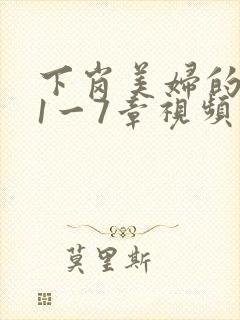 下岗美婦的
1一7章視頻
莫里斯